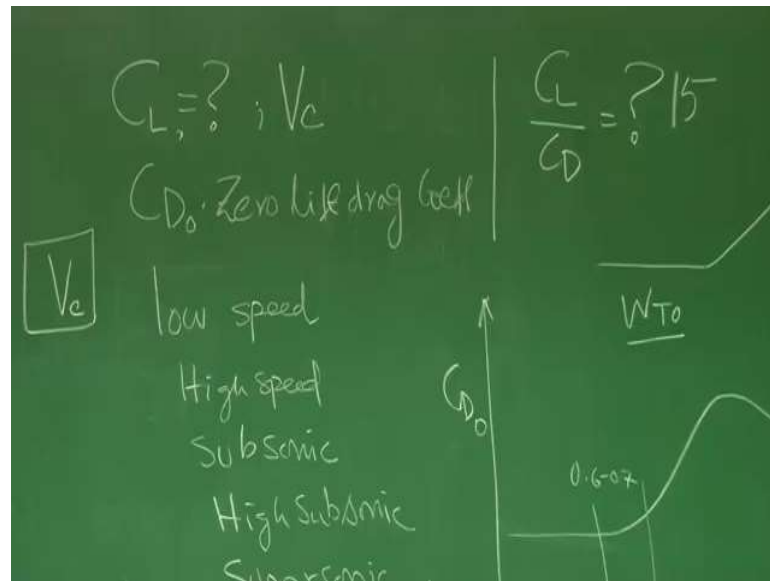 C_L, = ? ; V_C
C_D₀. Zero lift drag Coeff
V_C
low speed
High speed
Subsonic
High Subsonic
Supersonic
C_L / C_D = ? 15
W_TO
C_D₀
0.6-07